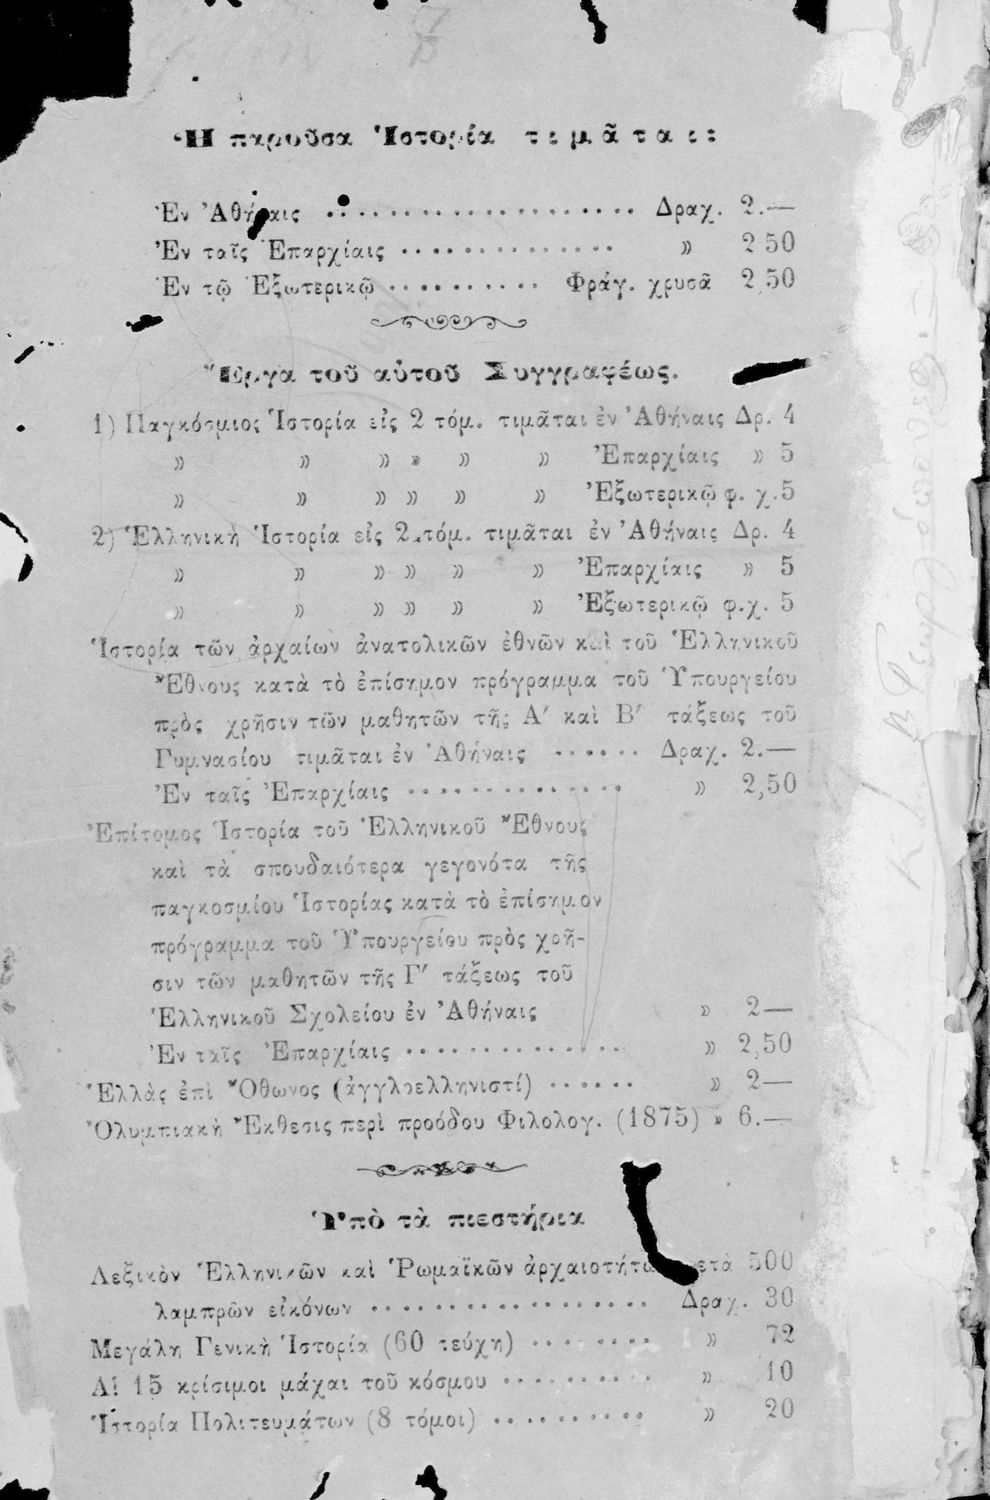 Ἡ παροῦσα Ἱστορία τιμᾶται:
Ἐν Ἀθήναις .................... Δραχ. 2.—
Ἐν ταῖς Ἐπαρχίαις .............. » 2 50
Ἐν τῷ Ἐξωτερικῷ .......... Φράγ. χρυσᾶ 2,50
Ἔργα τοῦ αὐτοῦ Συγγραφέως.
1) Παγκόσμιος Ἱστορία εἰς 2 τόμ. τιμᾶται ἐν Ἀθήναις Δρ. 4
» » » » » » Ἐπαρχίαις » 5
» » » » » » Ἐξωτερικῷ φ. χ. 5
2) Ἑλληνικὴ Ἱστορία εἰς 2 τόμ. τιμᾶται ἐν Ἀθήναις Δρ. 4
» » » » » » Ἐπαρχίαις » 5
» » » » » » Ἐξωτερικῷ φ.χ. 5
Ἱστορία τῶν ἀρχαίων ἀνατολικῶν ἐθνῶν καὶ τοῦ Ἑλληνικοῦ
Ἔθνους κατὰ τὸ ἐπίσημον πρόγραμμα τοῦ Ὑπουργείου
πρὸς χρῆσιν τῶν μαθητῶν τῆς Α′ καὶ Β′ τάξεως τοῦ
Γυμνασίου τιμᾶται ἐν Ἀθήναις ...... Δραχ. 2.—
Ἐν ταῖς Ἐπαρχίαις .............. » 2,50
Ἐπίτομος Ἱστορία τοῦ Ἑλληνικοῦ Ἔθνους
καὶ τὰ σπουδαιότερα γεγονότα τῆς
παγκοσμίου Ἱστορίας κατὰ τὸ ἐπίσημον
πρόγραμμα τοῦ Ὑπουργείου πρὸς χρῆ-
σιν τῶν μαθητῶν τῆς Γ′ τάξεως τοῦ
Ἑλληνικοῦ Σχολείου ἐν Ἀθήναις » 2—
Ἐν ταῖς Ἐπαρχίαις .............. » 2,50
Ἑλλὰς ἐπὶ Ὄθωνος (ἀγγλοελληνιστί) ...... » 2—
Ὀλυμπιακὴ Ἔκθεσις περὶ προόδου Φιλολογ. (1875) » 6.—
Ὑπὸ τὰ πιεστήρια
Λεξικὸν Ἑλληνικῶν καὶ Ῥωμαϊκῶν ἀρχαιοτήτων μετὰ 500
λαμπρῶν εἰκόνων .................. Δραχ. 30
Μεγάλη Γενικὴ Ἱστορία (60 τεύχη) ........ » 72
Αἱ 15 κρίσιμοι μάχαι τοῦ κόσμου .......... » 10
Ἱστορία Πολιτευμάτων (8 τόμοι) .......... » 20